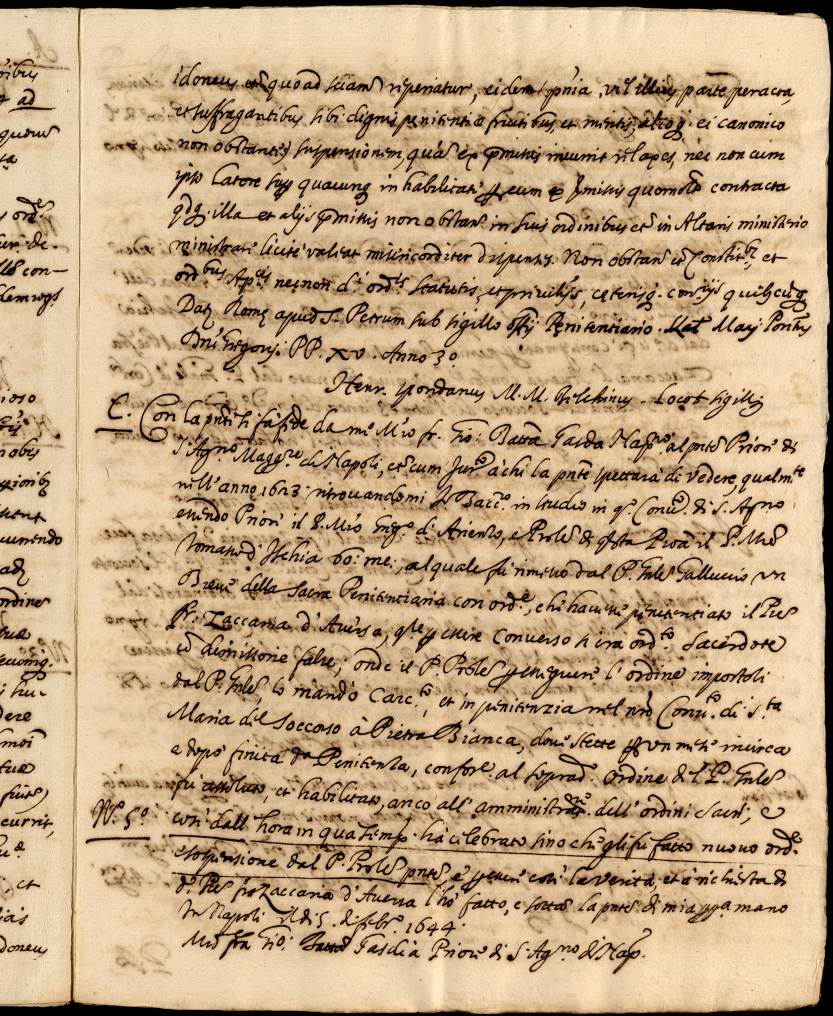 õibus
ad
quous
ord.e
de-
con-
demoqs
ioso
nobis
ssioribꝫ
uurendo
adꝫ
rdines
tua
dere
moi
tuæ
fuit
currit,
et
doneus
idoneus et quo ad sciam reperiatur, eidem pñia, vel illius parte peracta,
et suffragantibus sibi dignis penitentiæ fructibus, et meritis, alioqꝫ ei canonico
non obstante suspensionem, quã ex p̃missis incurrit relaxes, nec non cum
ipso latore super quacunqꝫ inhabilitate per eum ex p̃missis quomolt contracta
qdqꝫ illa et alijs p̃missis non obstan. in suis ordinibus et in Altaris ministerio
ministrare licitè valeat misericorditer dispenses. Non obstan. et Constitbꝫ, et
ordbus Apcis nec non di ordis statutis, et privilegijs, ceterisqꝫ conrijs quibꝫcūqꝫ
Datꝫ Romę apud S. Petrum sub sigillo offij Penitentiariæ. Kal Maij Pontus
Dni Gregorij PP. XV. Anno 3o.
Henr. Ipordanus M. M. Bilchinus - Loco † sigilli
C. Con la pnte si fa fede da me Mro fr. Gio: Batta Gasdia Napno al pnte Priore di
S. Agno Maggre di Napoli, et cum Jurto à chi la pnte spettarà di vedere, qualmte
nell'anno 1623. ritrovandomi Io Baccro in studio in qo Convto di S. Agno
essendo Priore il P. Mro Gregro d'Arienzo, e Prole di qsta Proa il P. Mro
Tomaso d'Ischia bo: me:, al quale fu rimesso dal P. Gnle Galluccio un
Breve della Sacra Penitentiaria con orde, che havesse penitentiato il Pre
fr. Zaccaria d'Aversa, qle p essere Converso si era ordto Sacerdote
cõ demissorie false; onde il P. Prole p eseguire l'ordine impostoli
dal P. Gnle lo mandò Carcto, et in penitenzia nel nro Convto di Sta
Maria del Soccorso à Pietra Bianca, dove stette p un mese incirca
e dopò finita da Penitenza, conforme al soprado Ordine del P. Gnle
fù assoluto, et habilitato, anco all'amministrne dell'ordini Sacri, e
No. 5o così dall'hora in qua sempre hà celebrato sino che gli fu fatto nuovo orde
e sospensione dal P. Prole pnte, e p essere così la verità, et à richiesta di
do Pre fra Zaccaria d'Aversa l'hò fatto, e sotta la pnte di mia ppa mano
In Napoli il dì 5. di febro 1644.
Mro fra Gio: Batta Gasdia Priore di S. Agno di Nap.